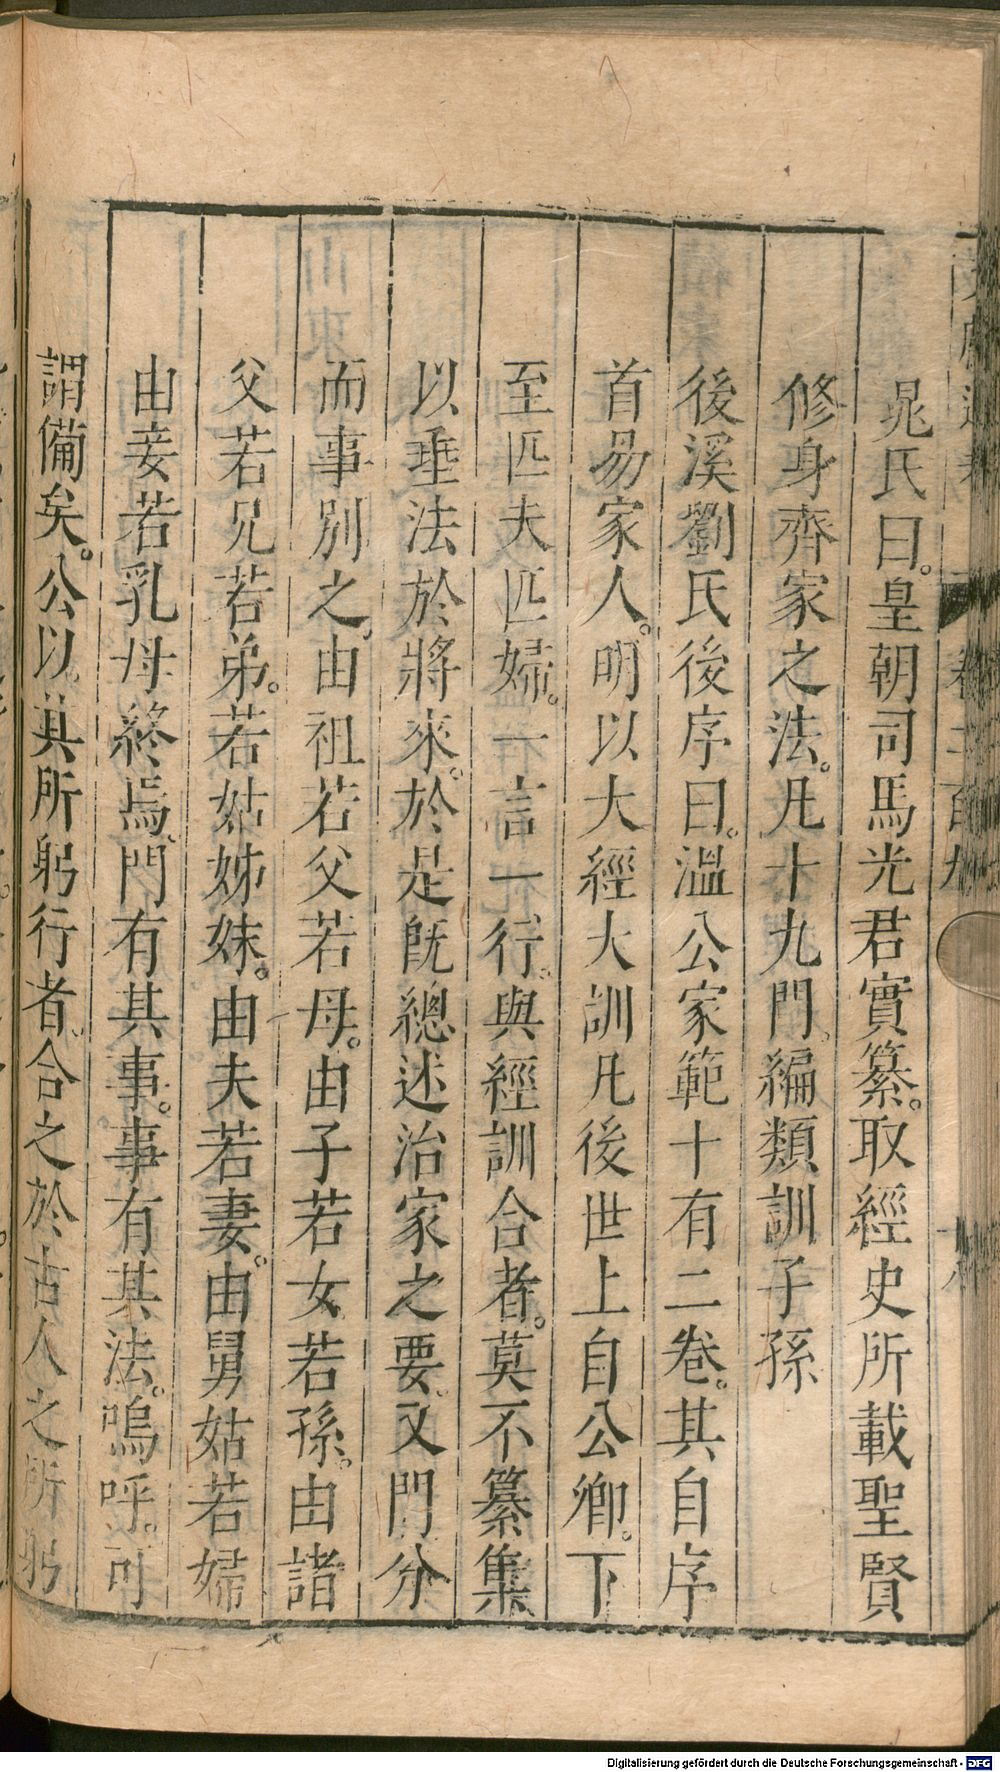 晁氏曰。皇朝司馬光君實纂。取經史所載聖賢
修身齊家之法。凡十九門、編類訓子孫
後溪劉氏後序曰。溫公家範十有二卷。其自序
首易家人。明以大經大訓凡後世上自公卿。下
至匹夫匹婦。一言一行、與經訓合者。莫不纂集
以垂法於將來。於是既總述治家之要、又門分
而事別之、由祖若父若母。由子若女若孫。由諸
父若兄若弟。若姑姊妹。由夫若妻。由舅姑若婦
由妾若乳母終焉、門有其事。事有其法。嗚呼。可
謂備矣。公以其所躬行者、合之於古人之所躬
卷二百九
十八
Digitalisierung gefördert durch die Deutsche Forschungsgemeinschaft - DFG